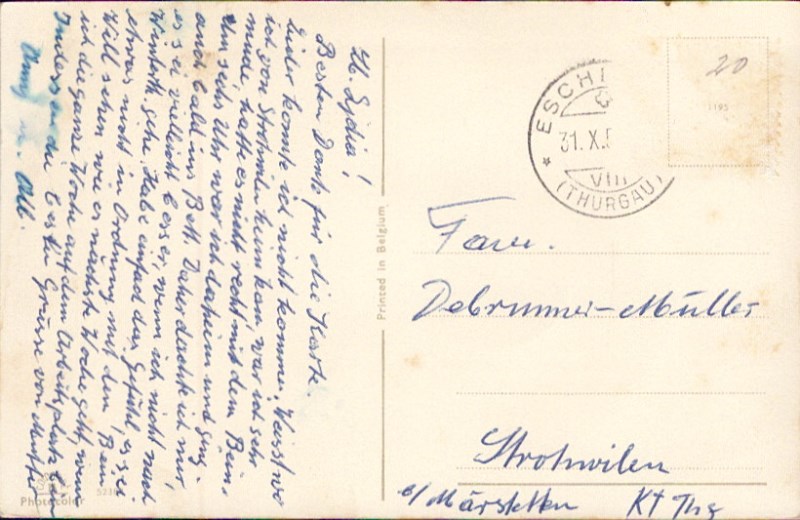 Lb. Lydia!
Besten Dank für die Karte.
Leider konnte ich nicht kommen. Weisst wo
ich von Strohwilen heim kam, war ich sehr
müde, hatte es nicht recht mit dem Bein,
Um sechs Uhr war ich daheim und ging
auch bald ins Bett. Daher dachte ich nur
es sei vielleicht besser, wenn ich nicht nach
Winterth. gehe. Habe einfach das Gefühl, es sei
etwas nicht in Ordnung mit dem Bein
Will sehen wie es nächste Woche geht, wenn
ich die ganze Woche auf dem Arbeitsplatz bin
Indessen die besten Grüsse von Mutter
Anny u. Alb.
Printed in Belgium
Photocolor
ESCHI
31. X. 5
VIII
(THURGAU)
20
1195
Fam.
Debrunner-Müller
Strohwilen
b/ Märstetten Kt Thg